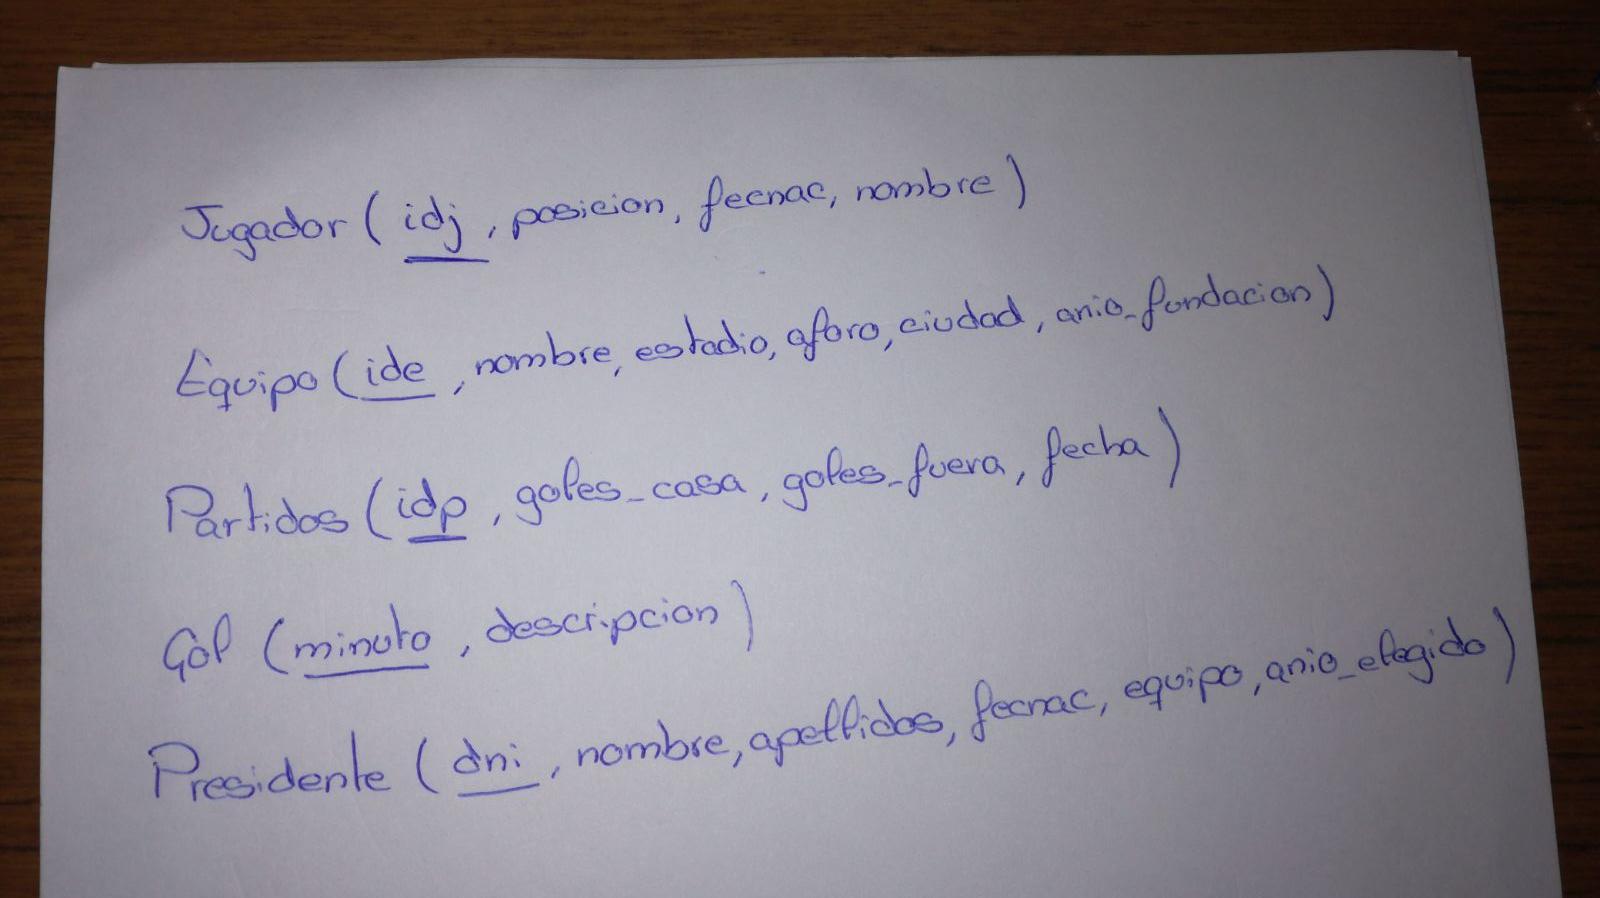 Jugador ( idj, posicion, fecnac, nombre )
Equipo ( ide, nombre, estadio, aforo, ciudad, anio_fundacion )
Partidos ( idp, goles_casa, goles_fuera, fecha )
Gol ( minuto, descripcion )
Presidente ( dni, nombre, apellidos, fecnac, equipo, anio_elegido )